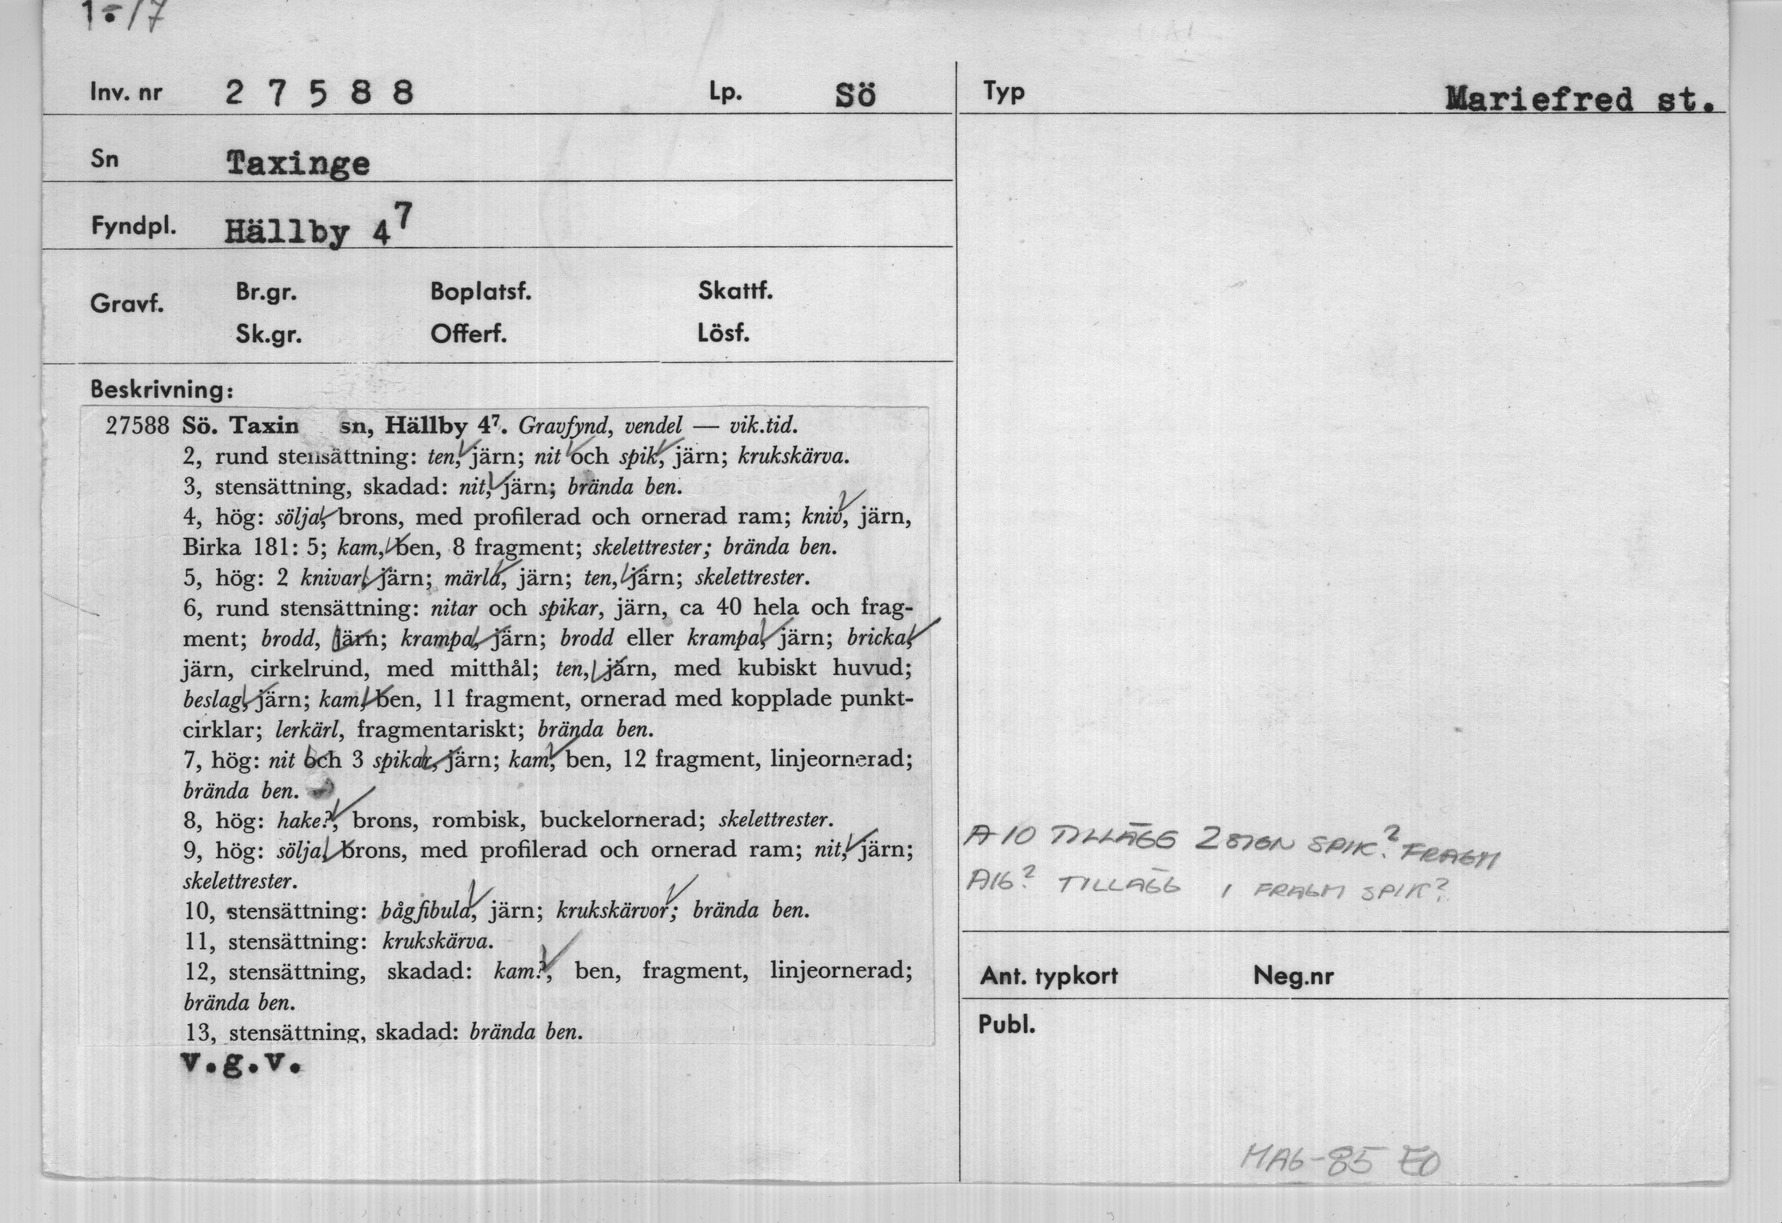 1-17
Inv. nr 27588 Lp. Sö
Sn Taxinge
Fyndpl. Hällby 4⁷
Gravf. Br.gr. Boplatsf. Skattf.
Sk.gr. Offerf. Lösf.
Beskrivning:
27588 Sö. Taxin sn, Hällby 4⁷. Gravfynd, vendel — vik.tid.
2, rund stensättning: ten, järn; nit och spik, järn; krukskärva.
3, stensättning, skadad: nit, järn; brända ben.
4, hög: sölja, brons, med profilerad och ornerad ram; kniv, järn,
Birka 181: 5; kam, ben, 8 fragment; skelettrester; brända ben.
5, hög: 2 knivar, järn; märla, järn; ten, järn; skelettrester.
6, rund stensättning: nitar och spikar, järn, ca 40 hela och frag-
ment; brodd, järn; krampa, järn; brodd eller krampa, järn; bricka,
järn, cirkelrund, med mitthål; ten, järn, med kubiskt huvud;
beslag, järn; kam, ben, 11 fragment, ornerad med kopplade punkt-
cirklar; lerkärl, fragmentariskt; brända ben.
7, hög: nit och 3 spikar, järn; kam, ben, 12 fragment, linjeornerad;
brända ben.
8, hög: hake?, brons, rombisk, buckelornerad; skelettrester.
9, hög: sölja, brons, med profilerad och ornerad ram; nit, järn;
skelettrester.
10, stensättning: bågfibula, järn; krukskärvor; brända ben.
11, stensättning: krukskärva.
12, stensättning, skadad: kam?, ben, fragment, linjeornerad;
brända ben.
13, stensättning, skadad: brända ben.
v.g.v.
Typ Mariefred st.
A10 TILLÄGG 2 SPIK? FRAGM
A16? TILLÄGG 1 FRAGM SPIK?
Ant. typkort Neg.nr
Publ.
MAG-85 EO